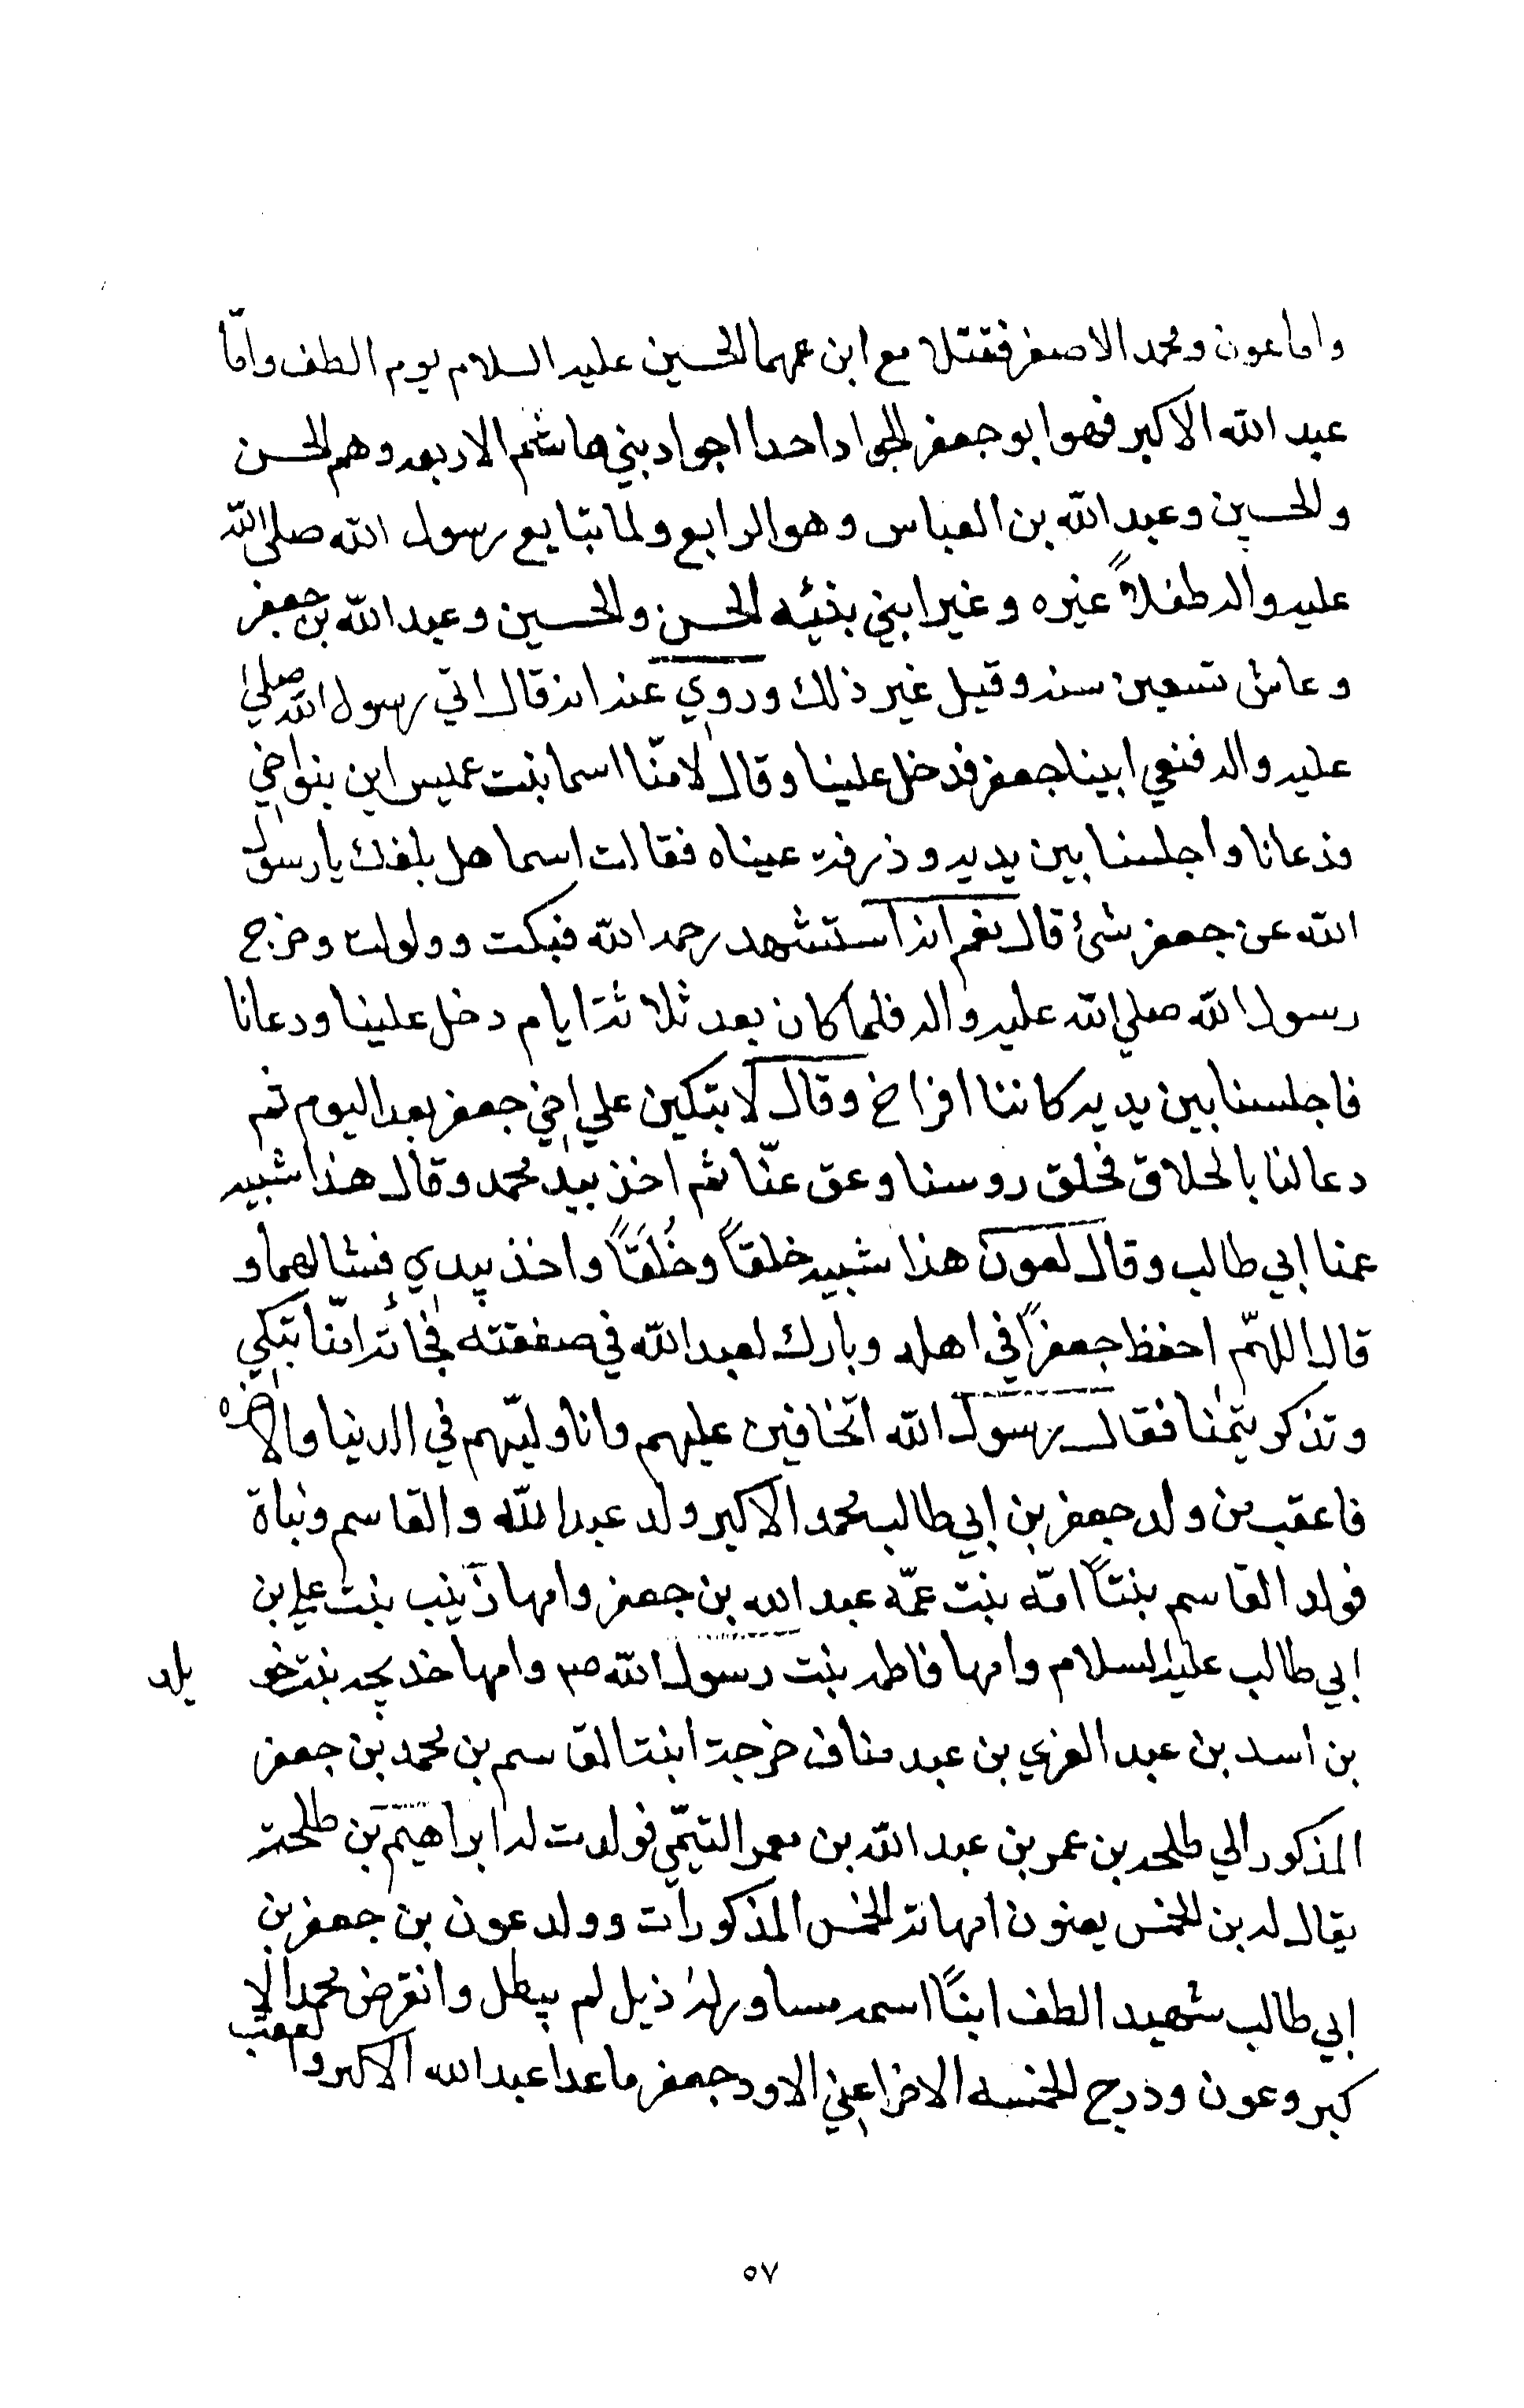 واما عون ومحمد الاصغر فقتلا مع ابن عمهما الحسين عليه السلام يوم الطف وامّا
عبد الله الاكبر فهوابو جعفر الجواد احدا اجواد بني هاشم الاربعه وهم الحسن
والحسين وعبد الله بن العباس وهو الرابع ولما بتايع رسول الله صلى الله
عليه واله طفلاً غيره وغير ابني بنته الحسن والحسين وعبد الله بن جعفر
وعاش تسعين سنه وقيل غير ذلك وروي عنه انه قال اتي رسول الله صلي
عليه واله فنعي ابينا جعفر فدخل علينا وقال لامنّا اسما بنت عميس اين بنو اخي
فدعانا واجلسنا بين يديه وذرفت عيناه فقالت اسما هل بلغك يا رسول
الله عن جعفر شئ قال نعم انه استشهد رحمه الله فبكت وولولت وخرج
رسول الله صلي الله عليه واله فلما كان بعد ثلاثة ايام دخل علينا ودعانا
فاجلسنا بين يديه كاننا افراخ وقال لا تبكين علي اخي جعفر بعد اليوم ثم
دعا لنا بالحلاق فحلق روسنا وعق عنّا ثم اخذ بيد محمد وقال هذا شبيه
عمنا ابي طالب وقال لعون هذا شبيه خلقاً وخُلَقاً واخذ بيدي فشالهما و
قال اللهمّ احفظ جعفراً في اهله وبارك لعبد الله في صفقته فجائته امّنا تبكي
وتذكر يتمنا فقال رسول الله اتخافين عليهم وانا وليّهم في الدنيا والاخره
فاعقب من ولد جعفر بن ابي طالب محمد الاكبر ولد عبد الله والقاسم وبناة
فولد القاسم بنتاً امّه بنت عمّه عبد الله بن جعفر وامها زينب بنت علي بن
ابي طالب عليه السلام وامها فاطمه بنت رسول الله صم وامها خديجه بنت خو يلد
بن اسد بن عبد العزي بن عبد مناف خرجة ابنت القاسم بن محمد بن جعفر
المذكور الي طلحه بن عمر بن عبد الله بن معمر التيّمي فولدت له ابراهيم بن طلحة
يقال له بن الخمس يعنون امهاته الخمس المذكورات وولد عون بن جعفر بن
ابي طالب شهيد الطف ابناً اسمه مساور له ذيل لم يطل وانقرض محمد الا
كبر وعون ودرج الخمسه الاخر اعني الاود جعفر ما عدا عبد الله الاكبر والعقب
٥٧